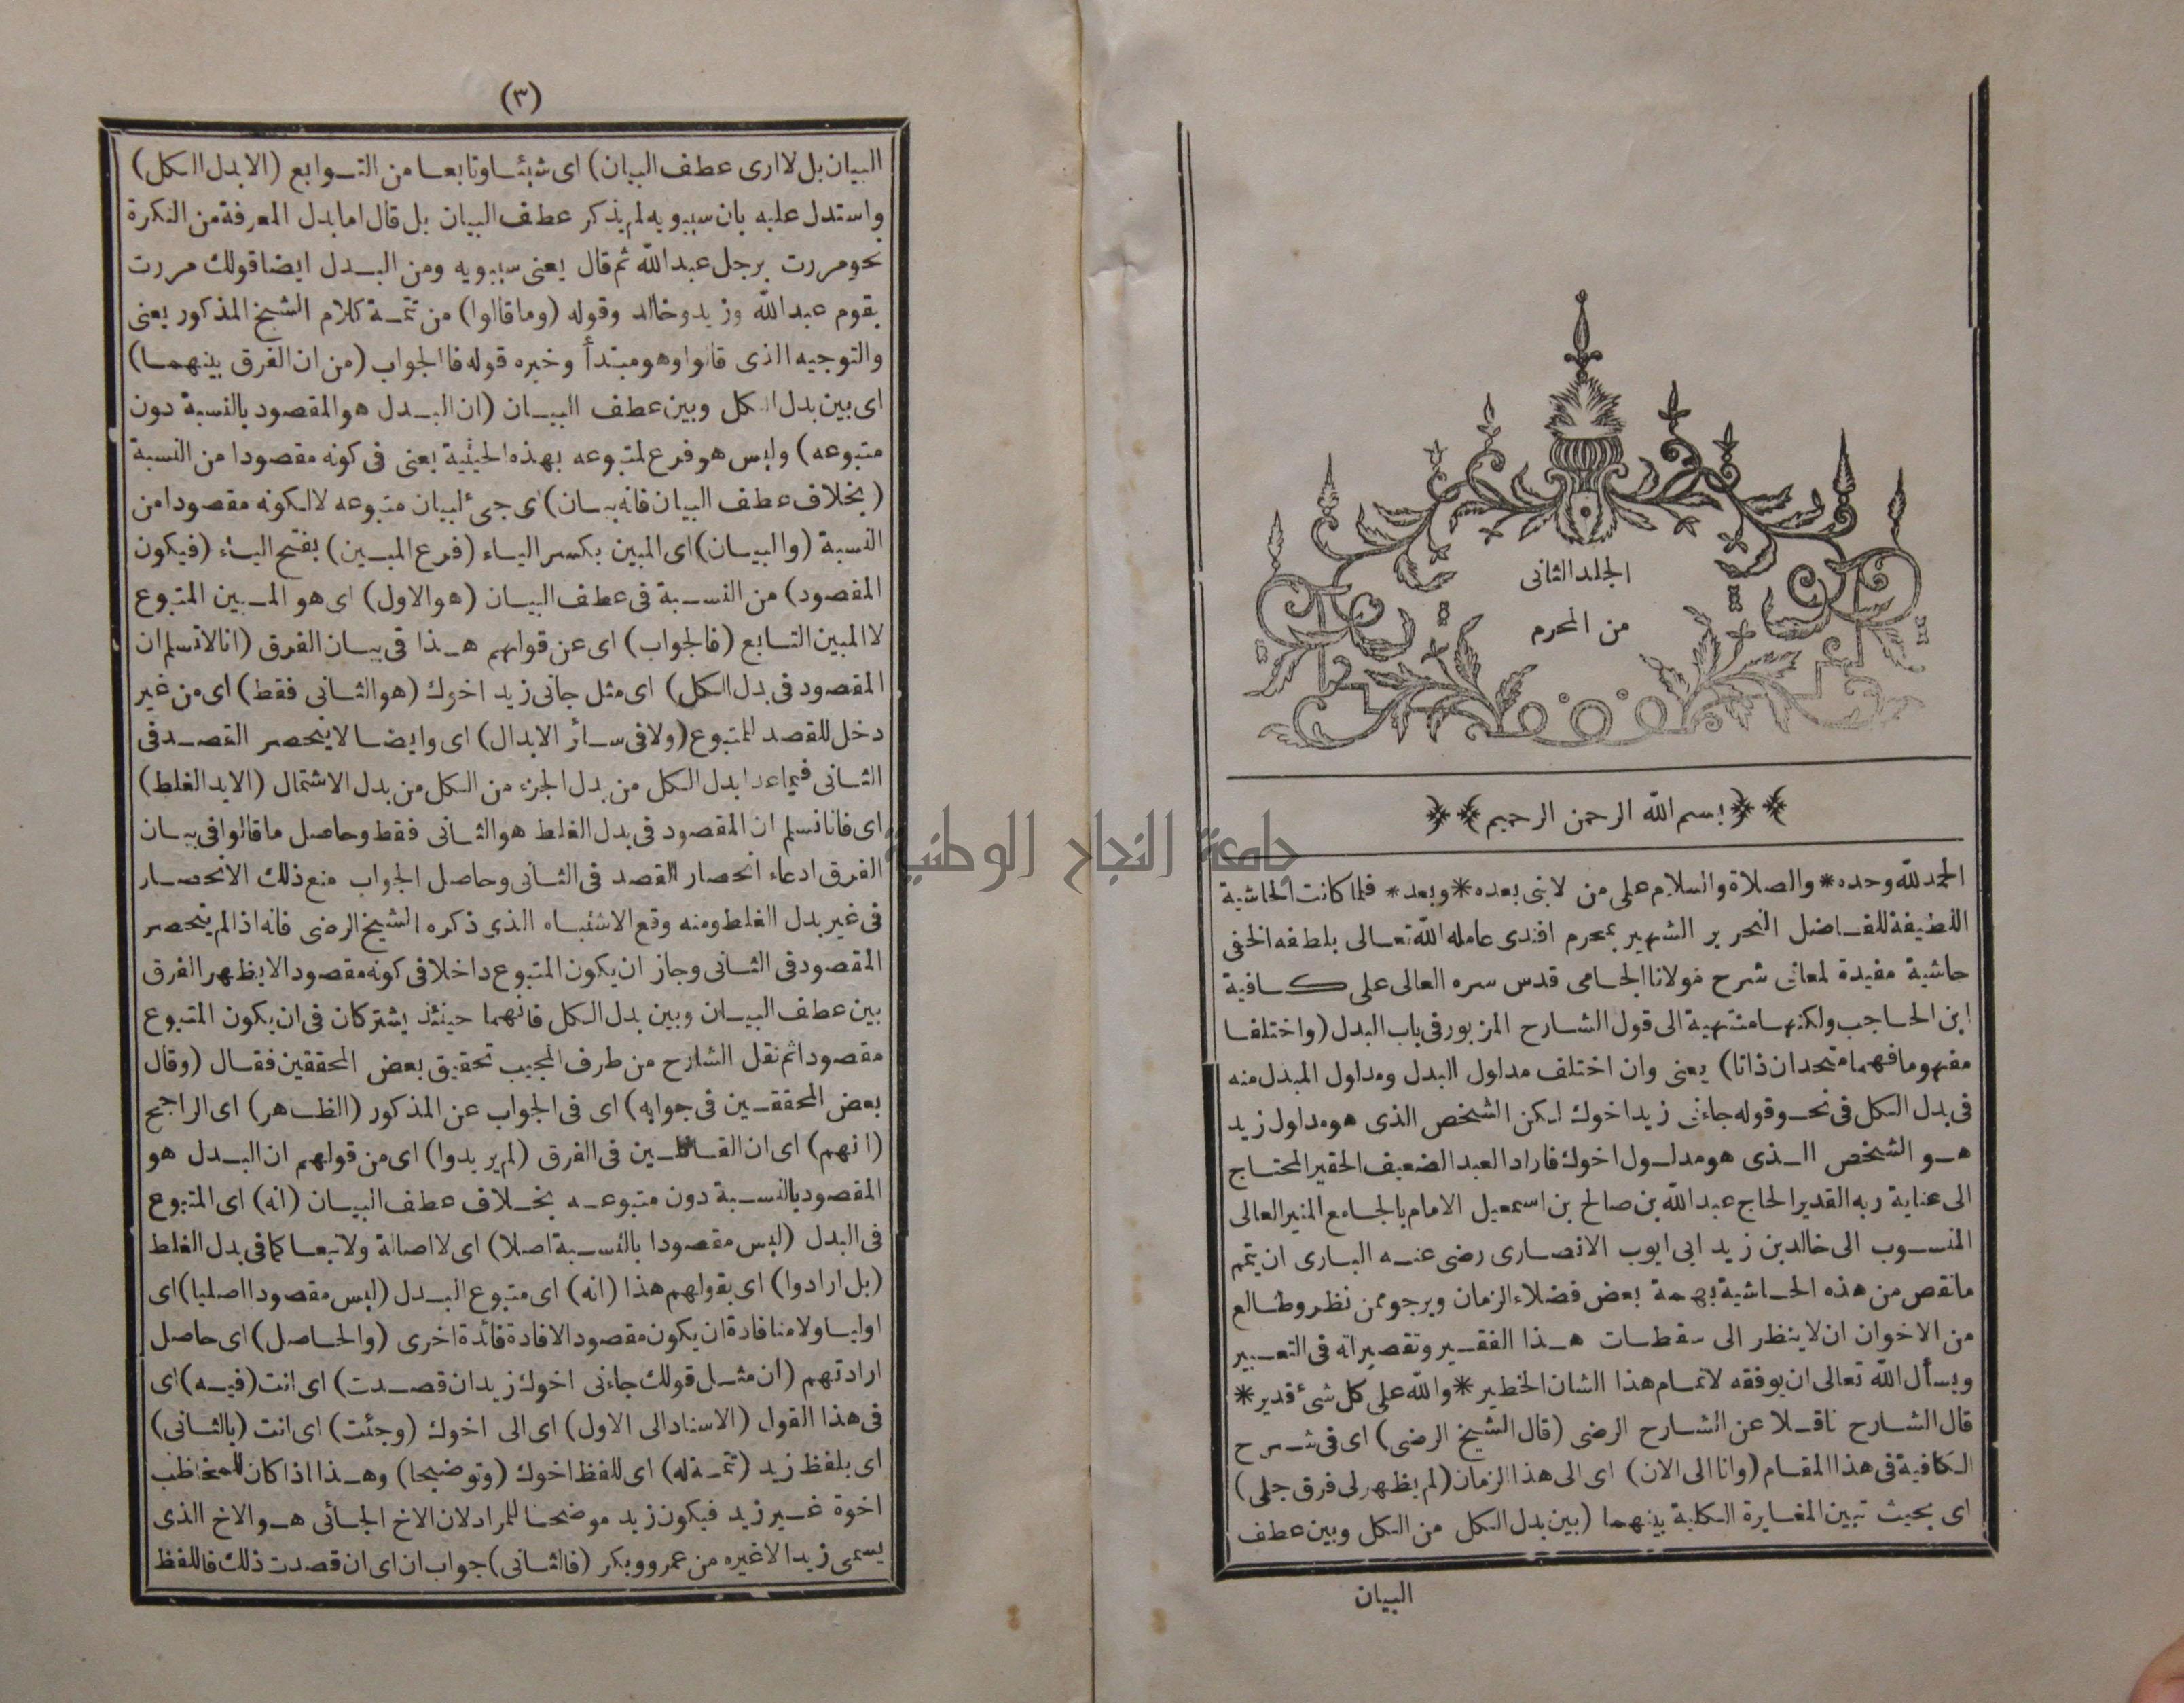 الجلد الثانى
من المحرم
بسم الله الرحمن الرحيم
الحمد لله وحده * والصلاة والسلام على من لا نبى بعده * وبعد * فلما كانت الحاشية
اللطيفة للفاضل النحرير الشهير بمحرم افندى عامله الله تعالى بلطفه الخفى
حاشية مفيدة لمعانى شرح مولانا الجامى قدس سره العالى على كافية
ابن الحاجب ولكنها منتهية الى قول الشارح المزبور فى باب البدل (واختلفا
مفهوما فهما متحدان ذاتا) يعنى وان اختلف مدلول البدل ومدلول المبدل منه
فى بدل الكل فى نحو قوله جاءنى زيد اخوك لكن الشخص الذى هو مدلول زيد
هو الشخص الذى هو مدلول اخوك فاراد العبد الضعيف الحقير المحتاج
الى عناية ربه القدير الحاج عبد الله بن صالح بن اسمعيل الامام بالجامع المنير العالى
المنسوب الى خالد بن زيد ابى ايوب الانصارى رضى عنه البارى ان يتمم
ما نقص من هذه الحاشية بهمة بعض فضلاء الزمان ويرجو ممن نظر وطالع
من الاخوان ان لا ينظر الى سقطات هذا الفقير وتقصيراته فى التعبير
ويسأل الله تعالى ان يوفقه لاتمام هذا الشان الخطير * والله على كل شئ قدير *
قال الشارح ناقلا عن الشارح الرضى (قال الشيخ الرضى) اى فى شرح
الكافية فى هذا المقام (وانا الى الان) اى الى هذا الزمان (لم يظهر لى فرق جلى)
اى بحيث تبين المغايرة الكلية بينهما (بين بدل الكل من الكل وبين عطف
البيان
(٣)
البيان بل لا ارى عطف البيان) اى شيئا وتابعا من التوابع (الا بدل الكل)
واستدل عليه بان سيبويه لم يذكر عطف البيان بل قال اما بدل المعرفة من النكرة
نحو مررت برجل عبد الله ثم قال يعنى سيبويه ومن البدل ايضا قولك مررت
بقوم عبد الله وزيد وخالد وقوله (وما قالوا) من تتمة كلام الشيخ المذكور يعنى
والتوجيه الذى قالوا وهو مبتدأ وخبره قوله فالجواب (من ان الفرق بينهما)
اى بين بدل الكل وبين عطف البيان (ان البدل هو المقصود بالنسبة دون
متبوعه) وليس هو فرع لمتبوعه بهذه الحيثية يعنى فى كونه مقصودا من النسبة
(بخلاف عطف البيان فانه بيان) اى جئ لبيان متبوعه لا لكونه مقصودا من
النسبة (والبيان) اى المبين بكسر الياء (فرع المبين) بفتح الياء (فيكون
المقصود) من النسبة فى عطف البيان (هو الاول) اى هو المبين المتبوع
لا المبين التابع (فالجواب) اى عن قولهم هذا فى بيان الفرق (انا لا نسلم ان
المقصود فى بدل الكل) اى مثل جانى زيد اخوك (هو الثانى فقط) اى من غير
دخل للقصد للمتبوع (ولا فى سائر الابدال) اى وايضا لا ينحصر القصد فى
الثانى فيما عدا بدل الكل من بدل الجزء من الكل من بدل الاشتمال (الا بد الغلط)
اى فانا نسلم ان المقصود فى بدل الغلط هو الثانى فقط وحاصل ما قالوا فى بيان
الفرق ادعاء انحصار القصد فى الثانى وحاصل الجواب منع ذلك الانحصار
فى غير بدل الغلط ومنه وقع الاشتباه الذى ذكره الشيخ الرضى فانه اذا لم ينحصر
المقصود فى الثانى وجاز ان يكون المتبوع داخلا فى كونه مقصودا لا يظهر الفرق
بين عطف البيان وبين بدل الكل فانهما حينئذ يشتركان فى ان يكون المتبوع
مقصودا ثم نقل الشارح من طرف المجيب تحقيق بعض المحققين فقال (وقال
بعض المحققين فى جوابه) اى فى الجواب عن المذكور (الظاهر) اى الراجح
(انهم) اى ان القائلين فى الفرق (لم يريدوا) اى من قولهم ان البدل هو
المقصود بالنسبة دون متبوعه بخلاف عطف البيان (انه) اى المتبوع
فى البدل (ليس مقصودا بالنسبة اصلا) اى لا اصالة ولا تبعا كما فى بدل الغلط
(بل ارادوا) اى بقولهم هذا (انه) اى متبوع البدل (ليس مقصودا اصليا) اى
اوليا ولا منافاة ان يكون مقصودا لافادة فائدة اخرى (والحاصل) اى حاصل
ارادتهم (ان مثل قولك جاءنى اخوك زيد ان قصدت) اى انت (فيه) اى
فى هذا القول (الاسناد الى الاول) اى الى اخوك (وجئت) اى انت (بالثانى)
اى بلفظ زيد (تتمة له) اى للفظ اخوك (وتوضيحا) وهذا اذا كان للمخاطب
اخوة غير زيد فيكون زيد موضحا للمراد لان الاخ الجائى هو الاخ الذى
يسمى زيدا لا غيره من عمرو وبكر (فالثانى) جواب ان اى ان قصدت ذلك فاللفظ
جامعة النجاح الوطنية